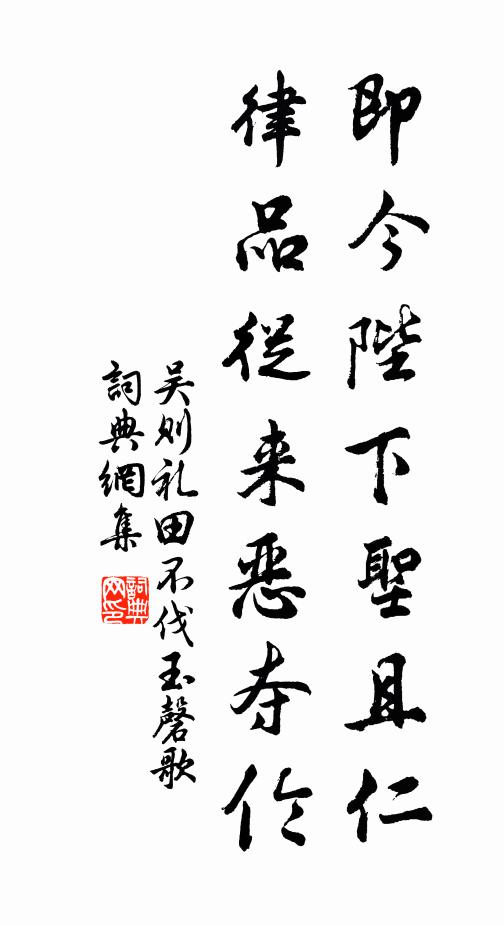 即今陛下聖且仁
律品從来惡夺伦
吴则礼田不伐玉磬歌
詞典網集
詞典網印